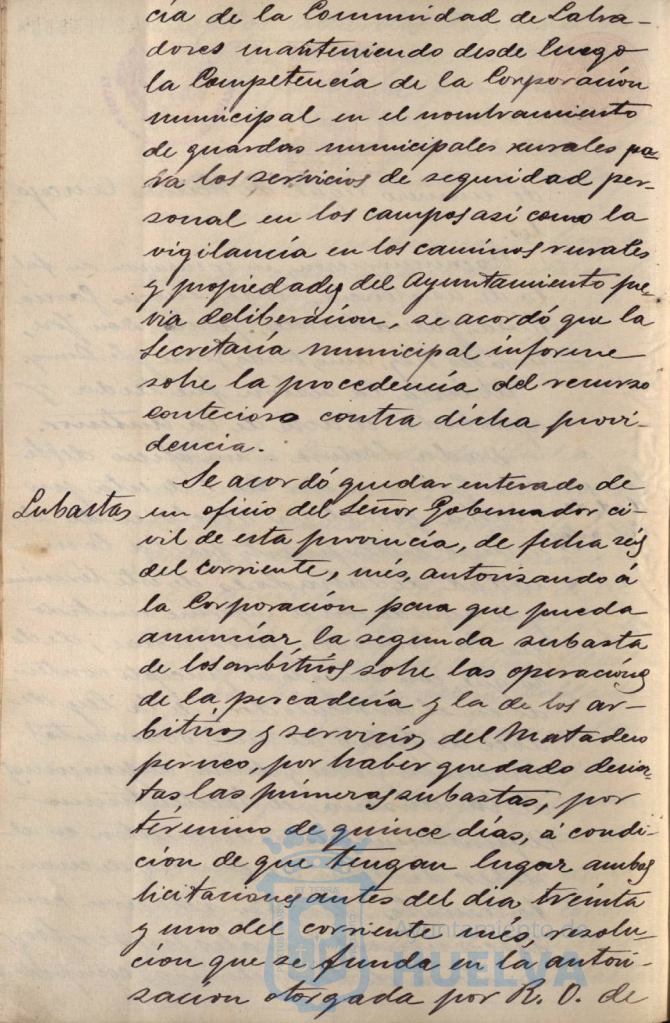 cía de la Comunidad de Labra-
dores manteniendo desde luego
la Competencia de la Corporación
municipal en el nombramiento
de guardas municipales rurales pa-
ra los servicios de seguridad per-
sonal en los campos así como la
vigilancia en los caminos rurales
y propiedades del Ayuntamiento pre-
via deliberación, se acordó que la
Secretaría municipal informe
sobre la procedencia del recurso
contecioso contra dicha provi-
dencia.
Se acordó quedar enterado de
Subastas
un oficio del Señor Gobernador ci-
vil de esta provincia, de fecha seis
del corriente, més, autorizando á
la Corporación para que pueda
anunciar la segunda subasta
de los arbitrios sobre las operaciónes
de la pescadería y la de los ar-
bitrios y servicios del Matadero
perneo, por haber quedado desier-
tas las primeras subastas, por
término de quince días, á condi-
ción de que tengan lugar ambas
licitaciones antes del dia treinta
y uno del corriente més, resolu-
cion que se funda en la autori-
sación otorgada por R. O. de
Ayuntamiento de
HUELVA